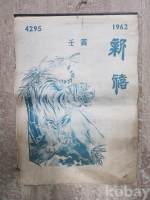 4295 1962
壬 寅
新禧
kobay